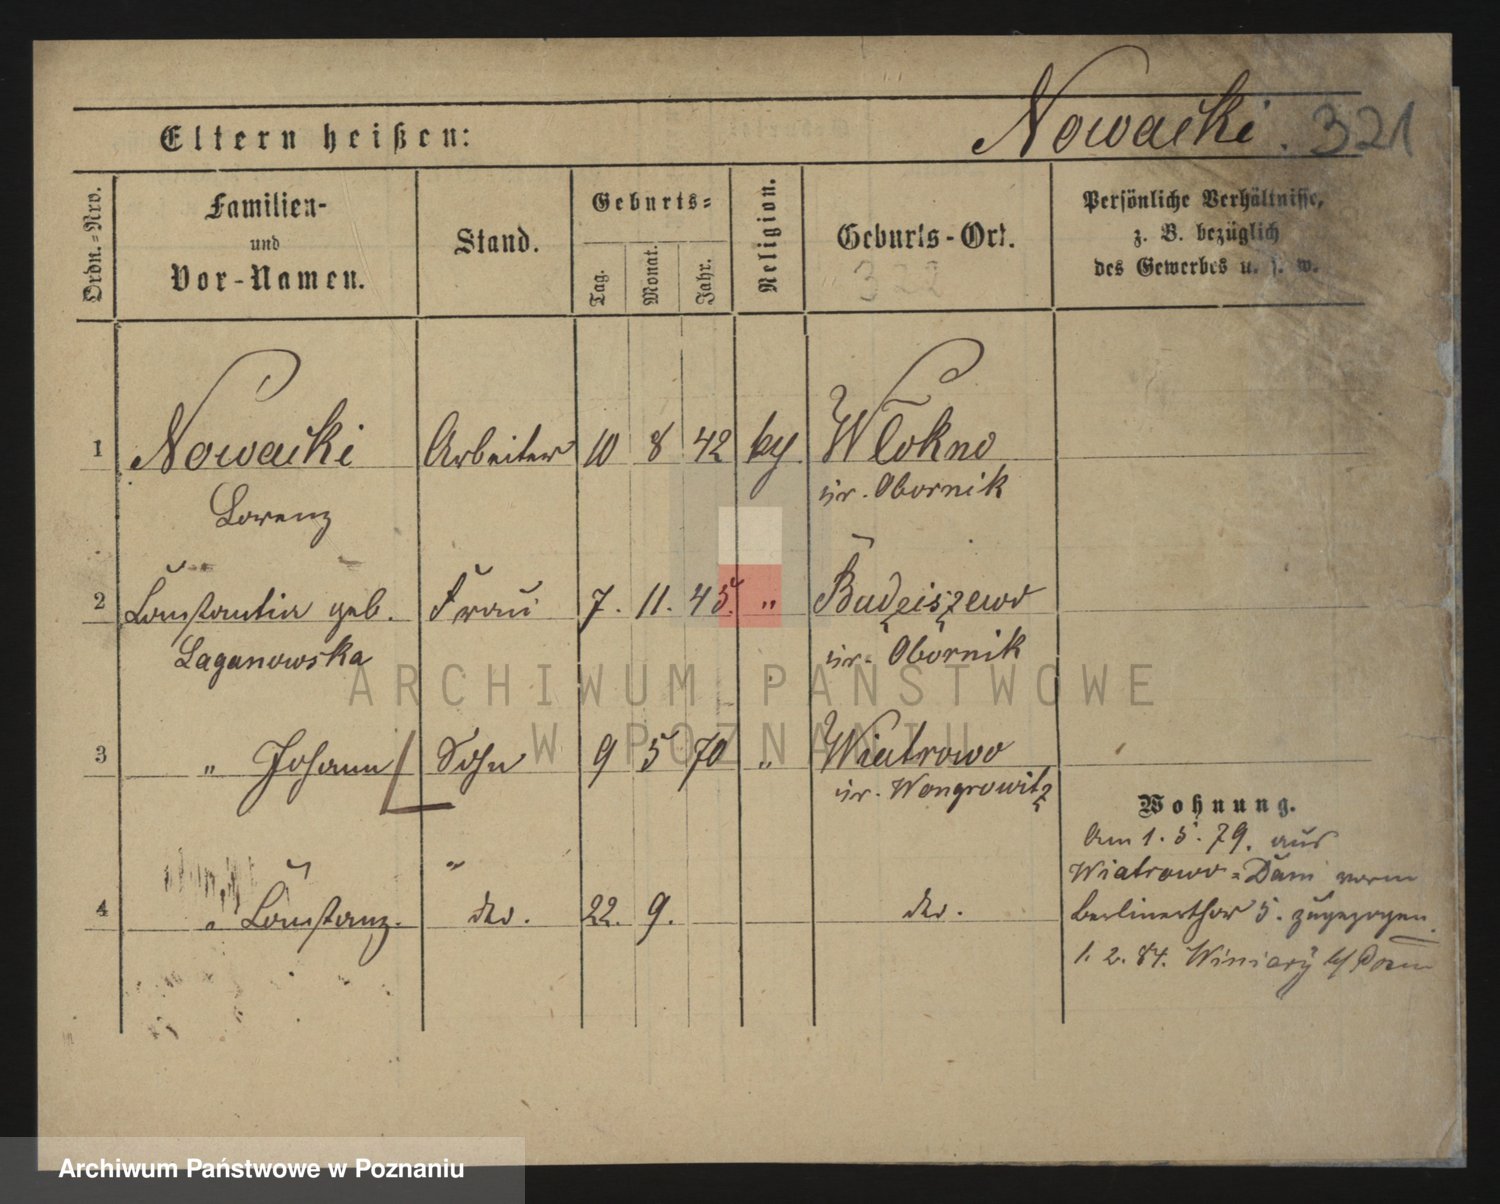 Eltern heißen:
Nowacki. 321
Ordn.=Nro.
Familien-
und
Vor-Namen.
Stand.
Geburts=
Tag.
Monat.
Jahr.
Religion.
Geburts-Ort.
322
Persönliche Verhältnisse,
z. B. bezüglich
des Gewerbes u. s. w.
1 Nowacki Arbeiter 10 8 42 Wlokno
Lorenz Kr. Obornik
2 Constantia geb. Frau 7. 11. 45. " Budziszewo
Laganowska Kr. Obornik
3 " Johann Sohn 9 5 70 " Wiatrowo
Kr. Wongrowitz
4 " Constanz. dto. 22. 9. dto.
Wohnung.
Am 1. 5. 79. aus
Wiatrowo=Dom
Berlinerthor 5. zugezogen.
1. 2. 84. Winiary
ARCHIWUM PAŃSTWOWE
W POZNANIU
Archiwum Państwowe w Poznaniu